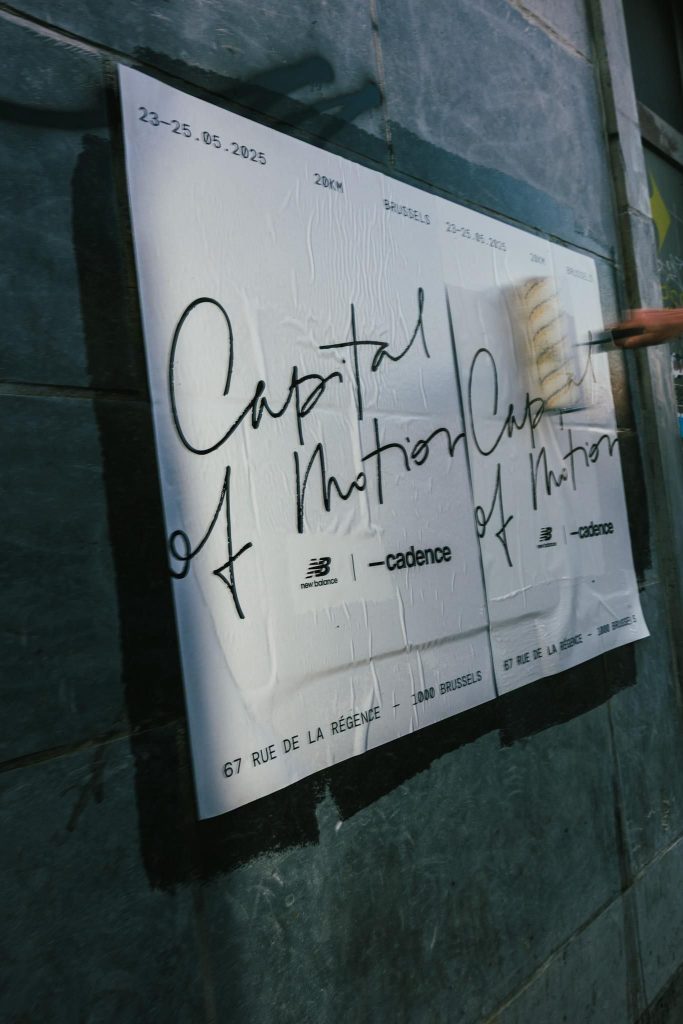 23-25.05.2025 20KM BRUSSELS
Capital
of Motion
NB
new balance | —cadence
67 RUE DE LA RÉGENCE — 1000 BRUSSELS
23-25.05.2025 20KM BRUSSELS
Capital
of Motion
NB
new balance | —cadence
67 RUE DE LA RÉGENCE — 1000 BRUSSELS